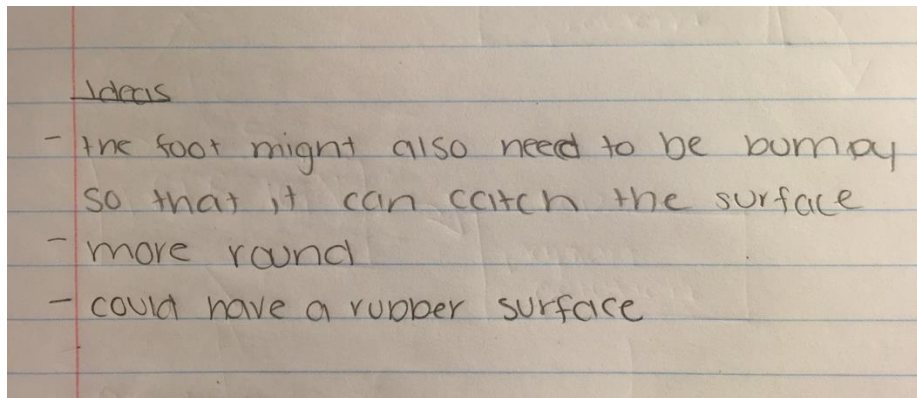 Ideas
- the foot might also need to be bumpy
so that it can catch the surface
- more round
- could have a rubber surface